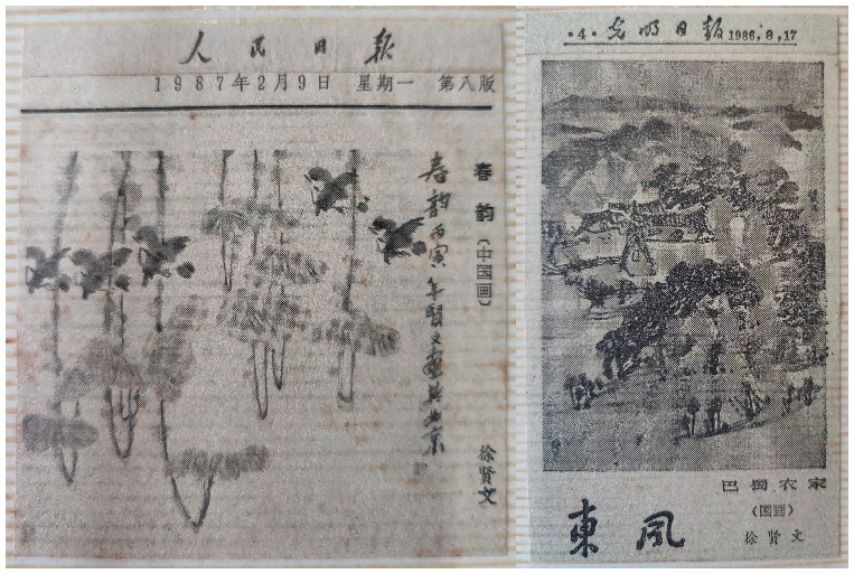 人民日报
1987年2月9日 星期一 第八版
春韵(中国画)
徐贤文
春韵 丙寅年贤文画于北京
·4· 光明日报 1986.8.17
巴蜀农家
(国画)
徐贤文
東风